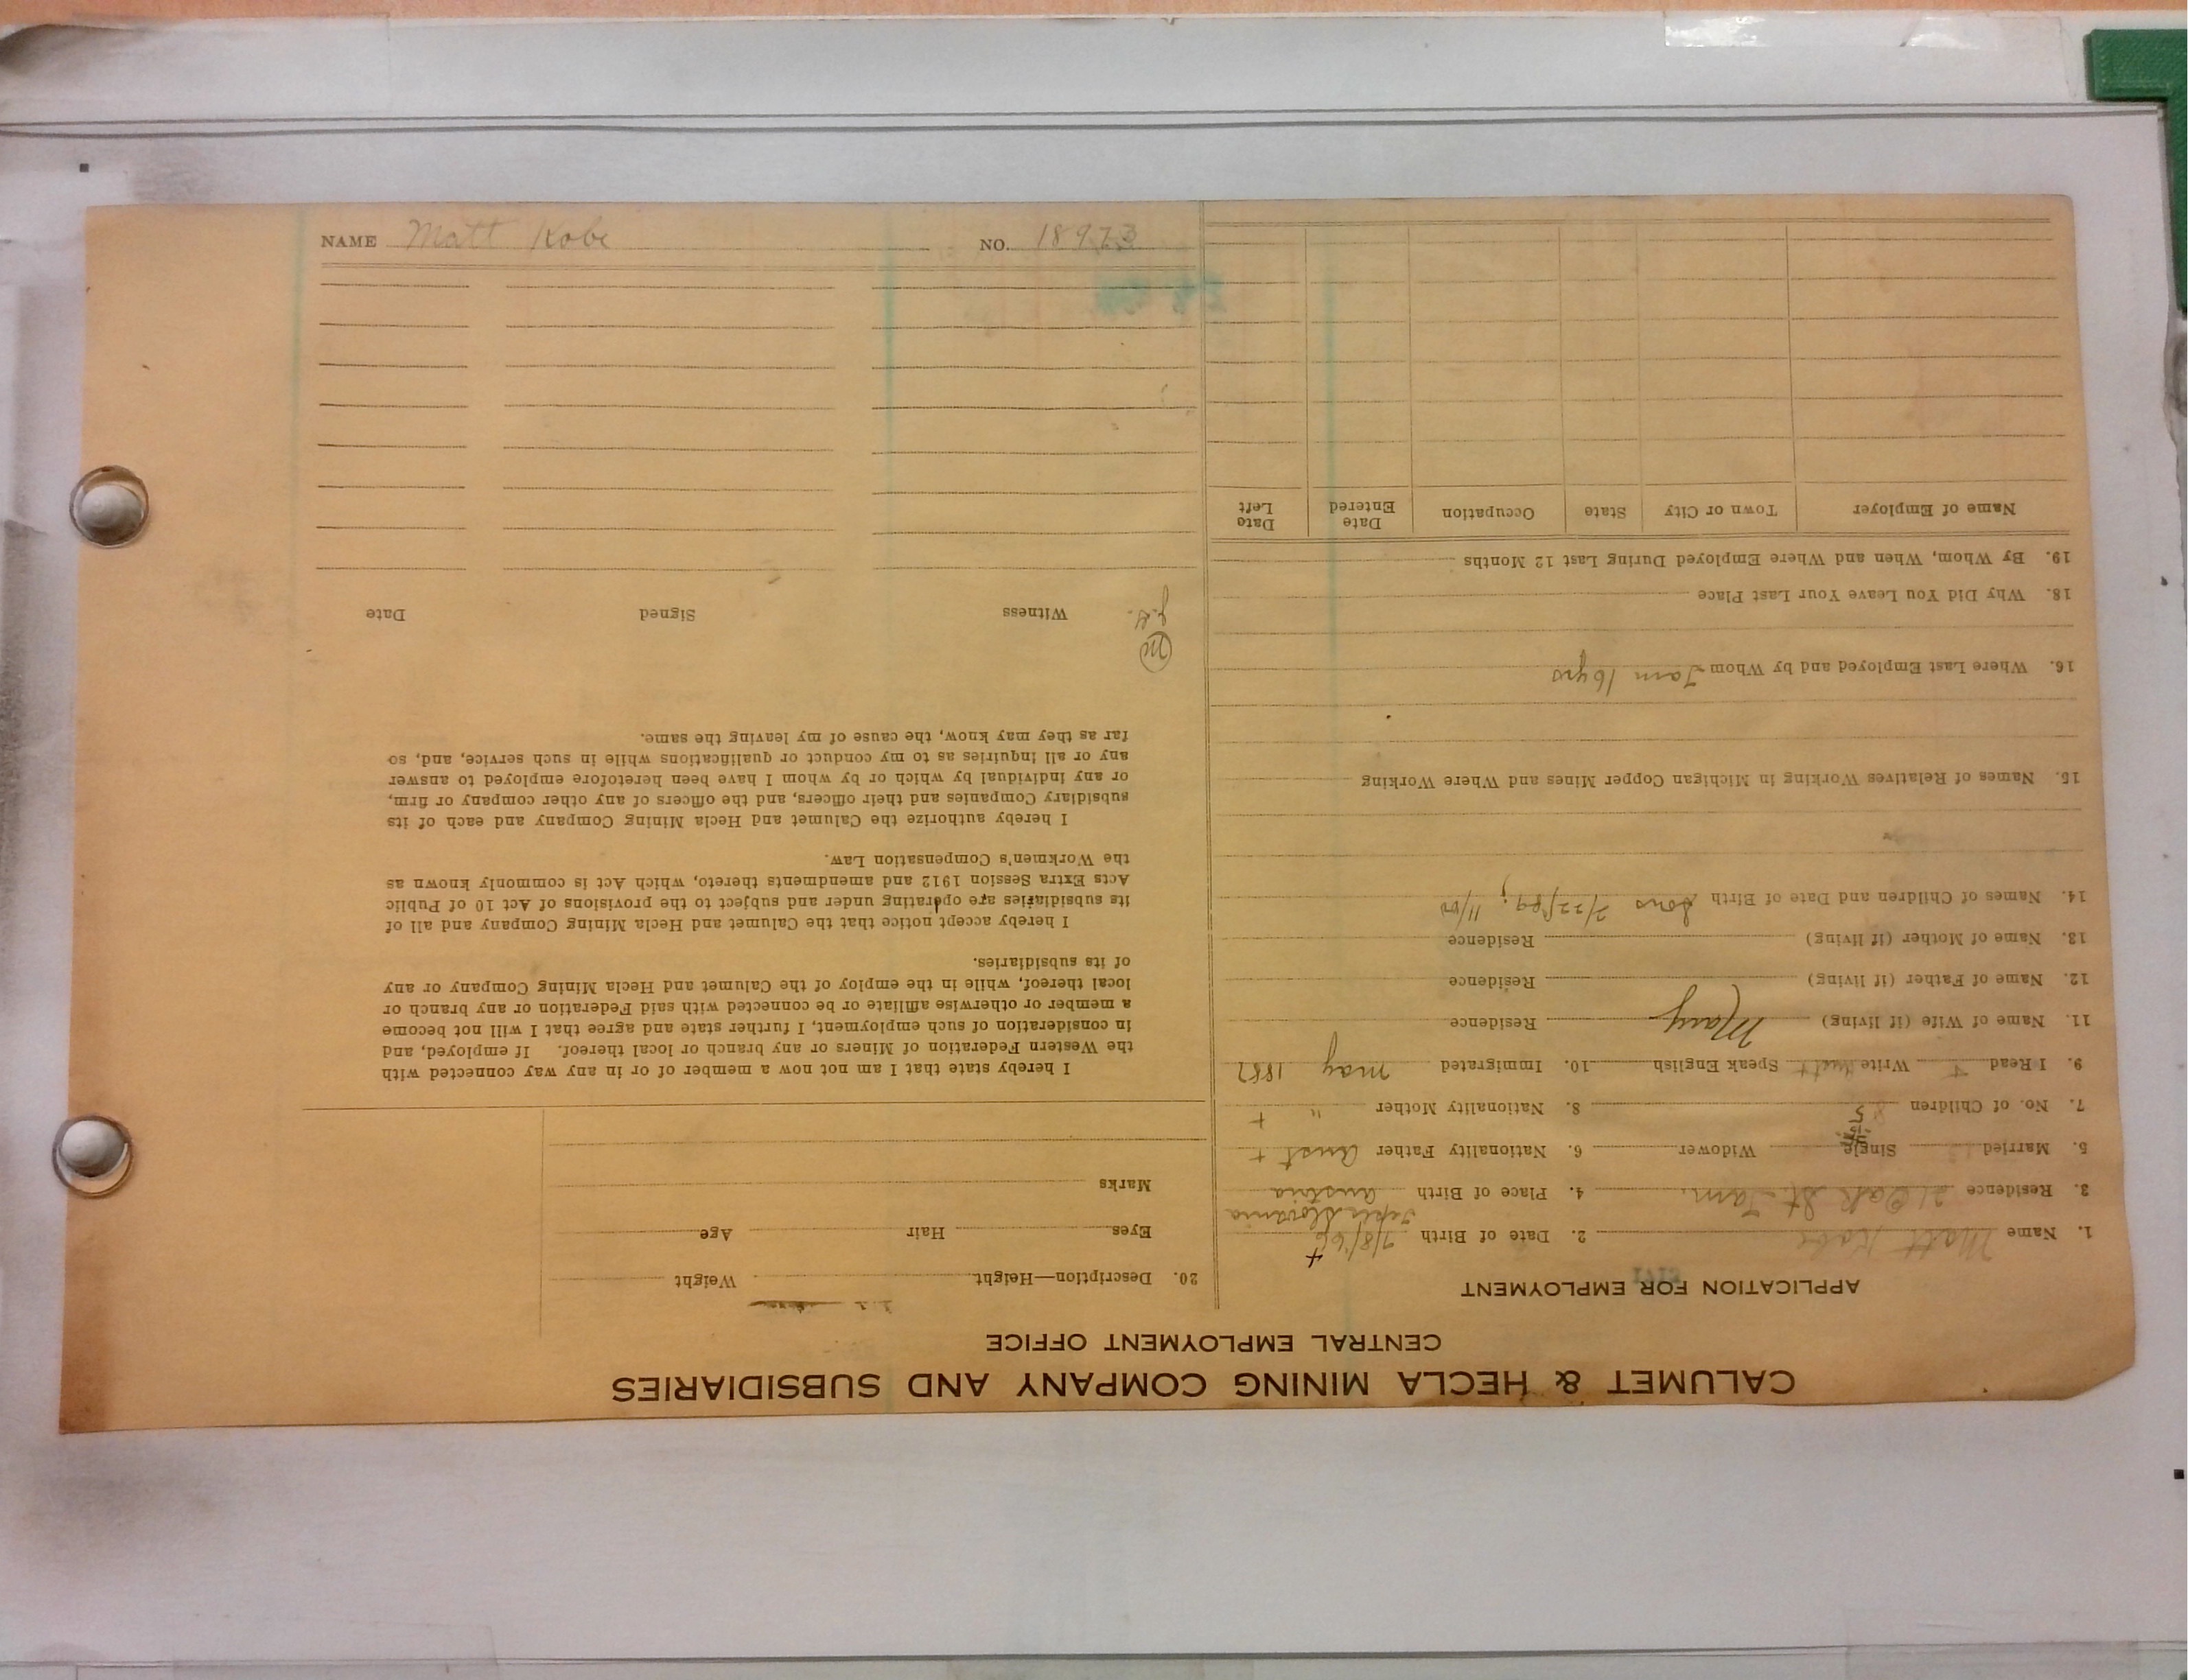 CALUMET & HECLA MINING COMPANY AND SUBSIDIARIES
CENTRAL EMPLOYMENT OFFICE
APPLICATION FOR EMPLOYMENT
1. Name Matt Kobe 2. Date of Birth
3. Residence 21 Oak St. Tam. 4. Place of Birth Austria
5. Married Single Widower 6. Nationality Father Aust +
7. No. of Children 5 8. Nationality Mother " +
9. I Read Write Speak English 10. Immigrated May 1887
11. Name of Wife (if living) Mary Residence
12. Name of Father (if living) Residence
13. Name of Mother (if living) Residence
14. Names of Children and Date of Birth Sons 2/22/89; 11/00
15. Names of Relatives Working in Michigan Copper Mines and Where Working
16. Where Last Employed and by Whom Tam 16 yrs
18. Why Did You Leave Your Last Place
19. By Whom, When and Where Employed During Last 12 Months
Name of Employer Town or City State Occupation Date Entered Date Left
20. Description—Height Weight
Eyes Hair Age
Marks
I hereby state that I am not now a member of or in any way connected with
the Western Federation of Miners or any branch or local thereof. If employed, and
in consideration of such employment, I further state and agree that I will not become
a member or otherwise affiliate or be connected with said Federation or any branch or
local thereof, while in the employ of the Calumet and Hecla Mining Company or any
of its subsidiaries.
I hereby accept notice that the Calumet and Hecla Mining Company and all of
its subsidiaries are operating under and subject to the provisions of Act 10 of Public
Acts Extra Session 1912 and amendments thereto, which Act is commonly known as
the Workmen's Compensation Law.
I hereby authorize the Calumet and Hecla Mining Company and each of its
subsidiary Companies and their officers, and the officers of any other company or firm,
or any individual by which or by whom I have been heretofore employed to answer
any or all inquiries as to my conduct or qualifications while in such service, and, so
far as they may know, the cause of my leaving the same.
Witness Signed Date
NAME Matt Kobe NO. 18973